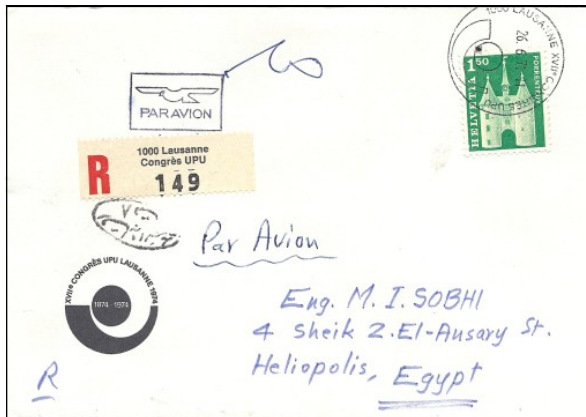 1000 LAUSANNE XVIIe
26.6.74
HELVETIA
1 50
PORRENTRUY
PAR AVION
1000 Lausanne
Congrès UPU
R
149
Par Avion
XVIIe CONGRÈS UPU LAUSANNE 1974
1874 1974
Eng. M. I. SOBHI
4 Sheik Z. El-Ansary St.
Heliopolis, Egypt
R